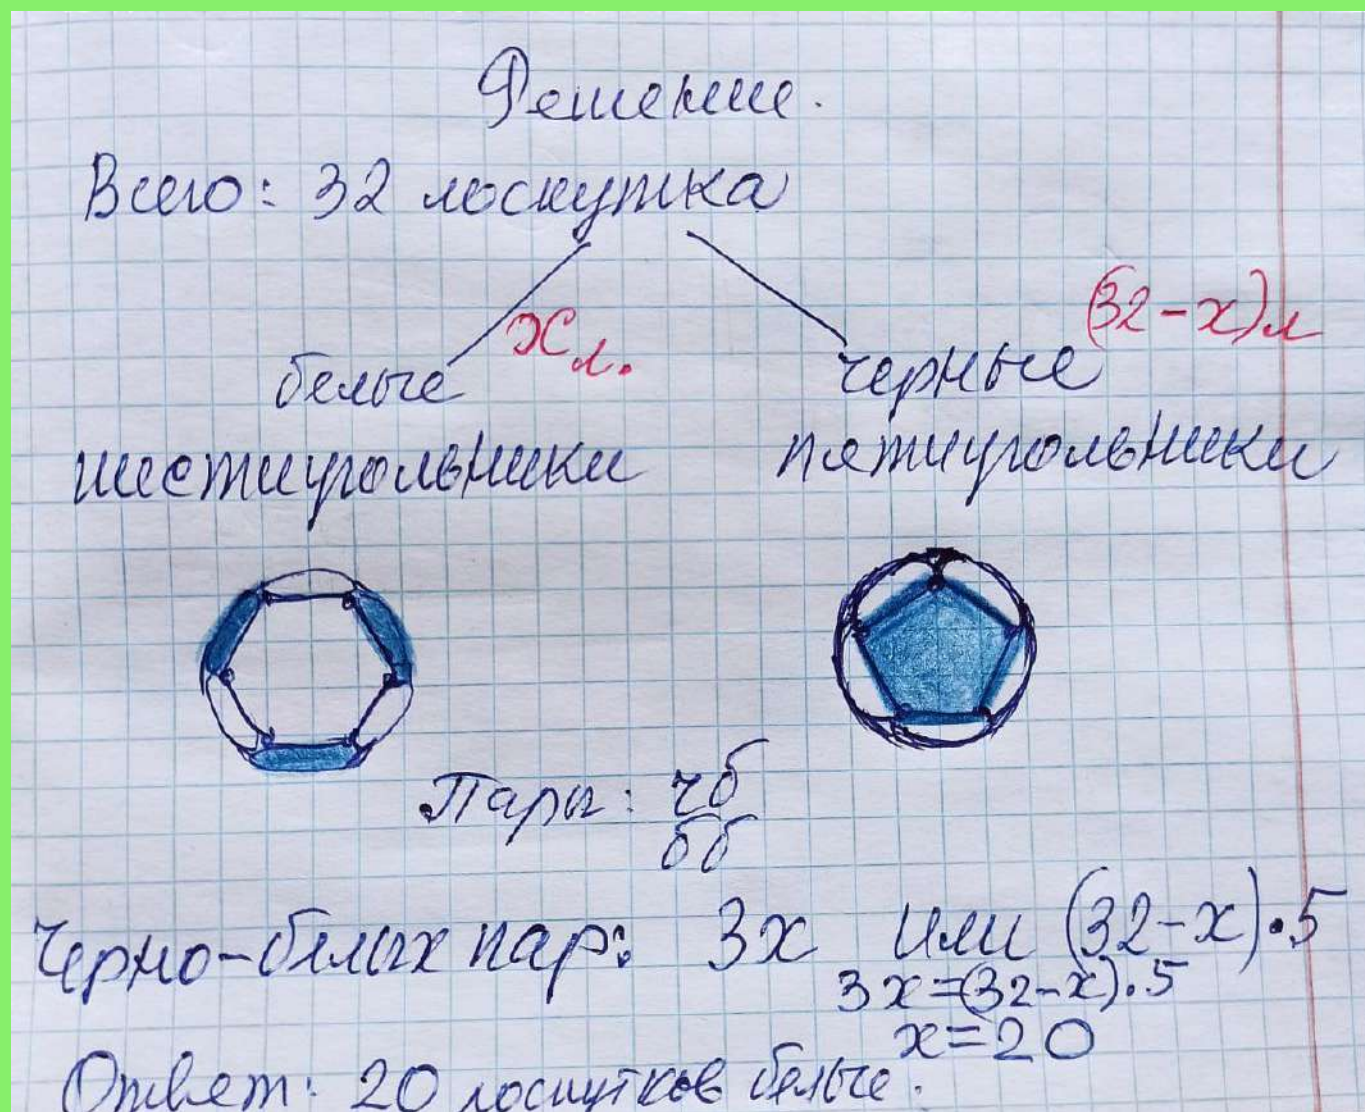 Решение.
Всего: 32 лоскутка
x л.
(32-x) л
белые
черные
шестиугольники
пятиугольники
Пары: чб
бб
Черно-белых пар: 3x или (32-x)·5
3x=(32-x)·5
x=20
Ответ: 20 лоскутков белые.